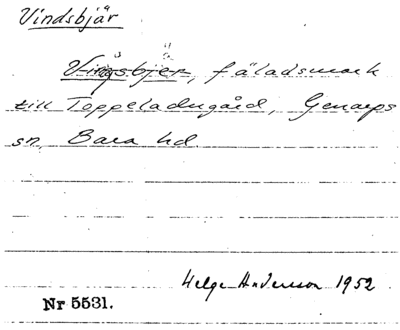 Vindsbjär
Vingsbjer, fäladsmark
till Toppeladugård, Genarps
sn, Bara hd
Helge Andersson 1952
Nr 5531.